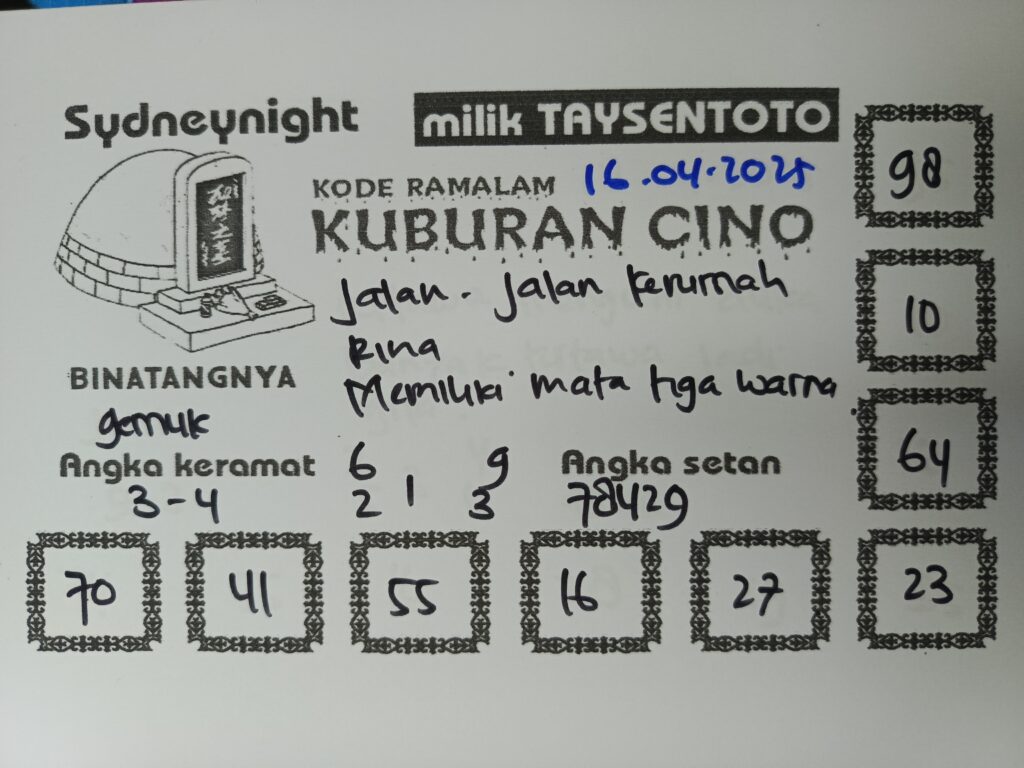 Sydneynight
milik TAYSENTOTO
KODE RAMALAM 16.04.2025
KUBURAN CINO
Jalan - Jalan kerumah
Rina
Memiliki mata tiga warna.
BINATANGNYA
gemuk
Angka keramat
3-4
6 9
2 1 3
Angka setan
78429
98
10
64
70 41 55 16 27 23